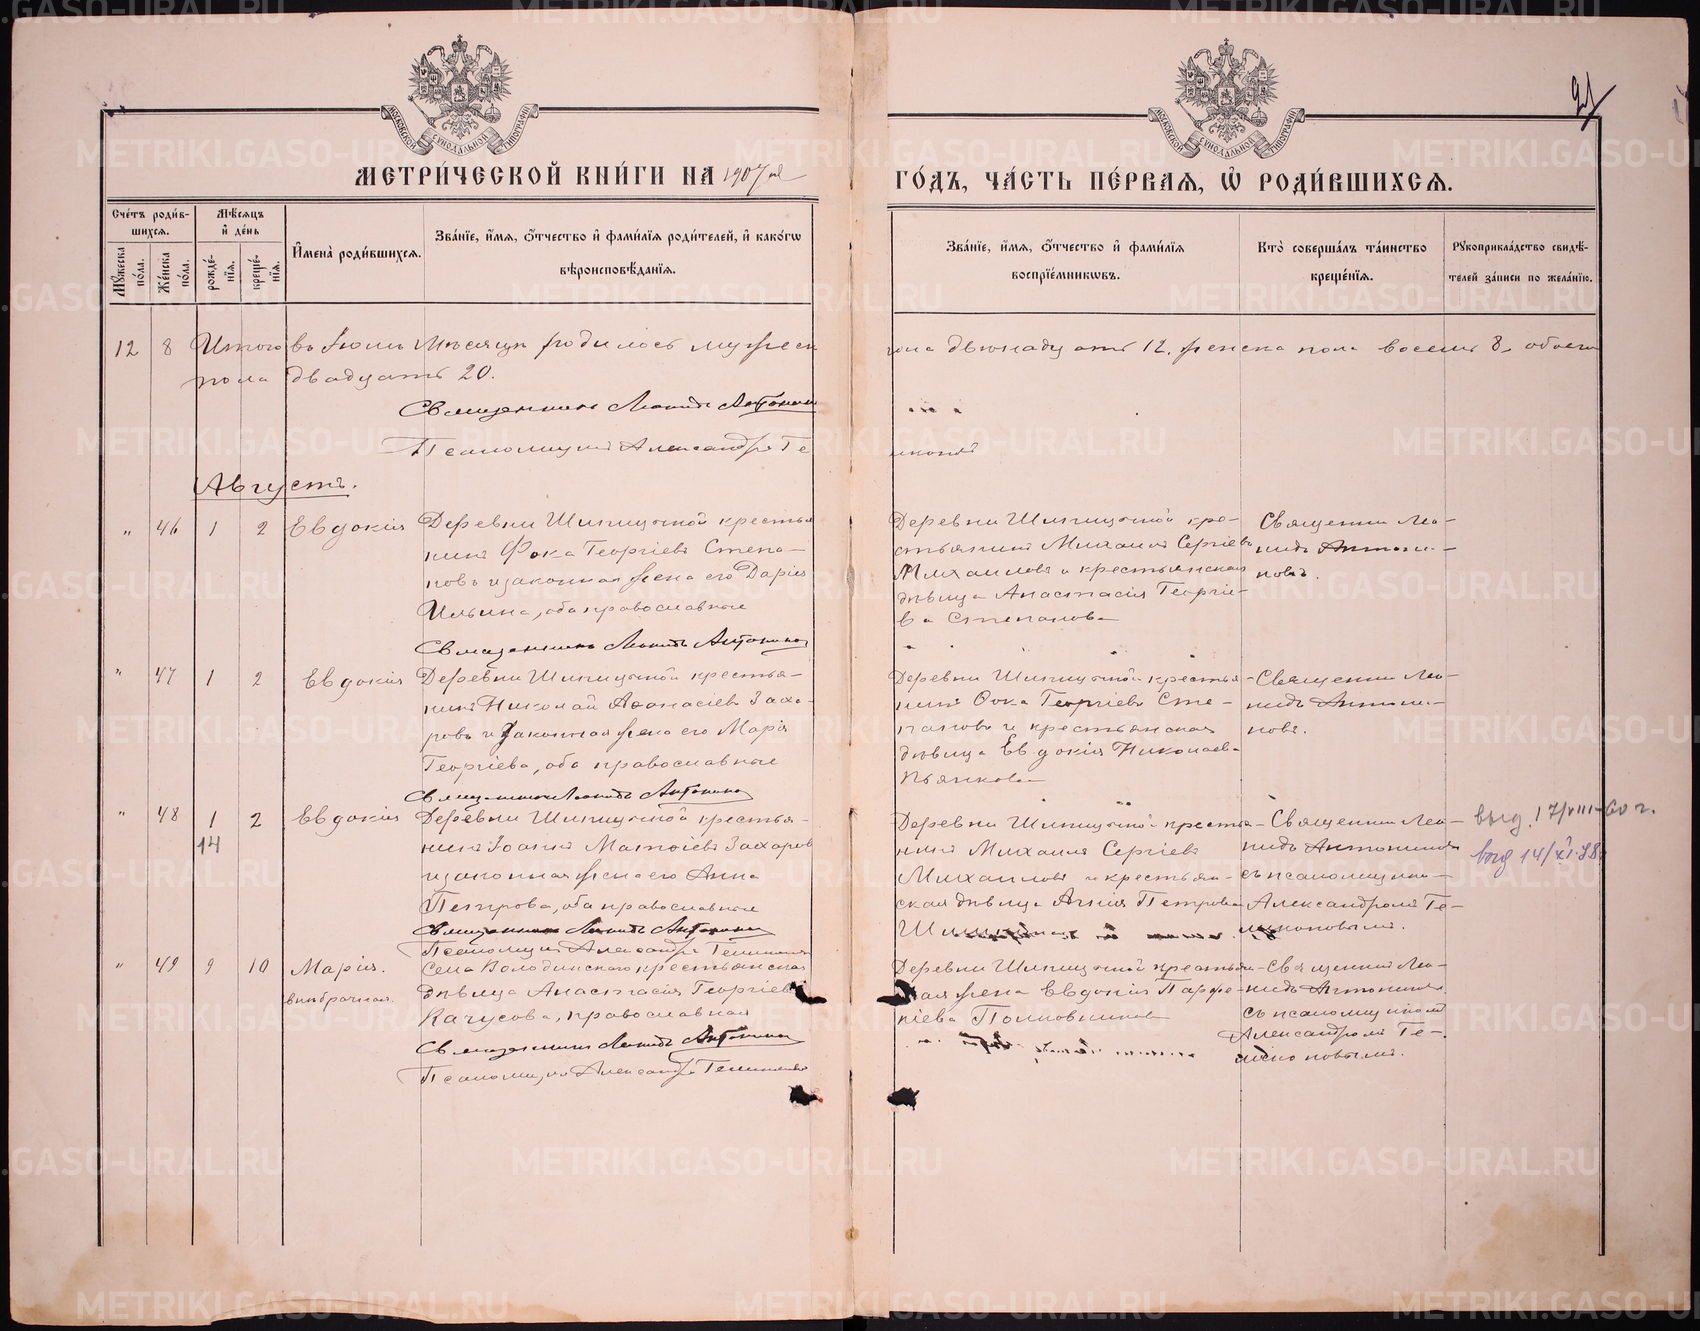 МЕТРИ́ЧЕСКОЙ КНИ́ГИ НА 1907й
ГО́ДЪ, ЧА́СТЬ ПЕ́РВАЯ, Ѡ РОДИ́ВШИХСЯ.
91
Сче́тъ роди́в-
шихся.
Мѣ́сяцъ
и де́нь
Мꙋжеска по́ла.
Же́нска по́ла.
рожде́нїя.
креще́нїя.
Имена̀ роди́вшихся.
Зва́нїе, и́мя, ѻ́тчество и фами́лїя роди́телей, и како́гѡ
вѣроисповѣ́данїя.
Зва́нїе, и́мя, ѻ́тчество и фами́лїя
воспрїе́мникѡвъ.
Кто̀ соверша́лъ та́инство
креще́нїя.
Рꙋкоприкла́дство свидѣ́-
телей за́писи по жела́нїю.
12 8 Итого въ Іюлѣ мѣсяцѣ родилось мужеска
пола двѣнадцать 12, женска пола восемь 8, обоего
пола двадцать 20.
Священникъ Леонидъ Антонинъ
Псаломщикъ Александръ
Августъ.
„ 46 1 2 Евдокія
Деревни Шипицыной крестья
нинъ Фока Георгіевъ Степа-
новъ и законная жена его Дарія
Ильина, оба православные
Священникъ Леонидъ Антониновъ
Деревни Шипицыной кре-
стьянинъ Михаилъ Сергіевъ
Михаиловъ и крестьянская
дѣвица Анастасія Георгіе-
ва Степанова
Священникъ Лео-
нидъ Антони-
новъ.
„ 47 1 2 Евдокія
Деревни Шипицыной крестья-
нинъ Николай Аѳанасіевъ Заха-
ровъ и законная жена его Марія
Георгіева, оба православные
Священникъ Леонидъ Антониновъ
Деревни Шипицыной крестья-
нинъ Фока Георгіевъ Сте-
пановъ и крестьянская
дѣвица Евдокія Николаева
Пьянкова
Священникъ Лео-
нидъ Антони-
новъ.
„ 48 1 2 Евдокія
14
Деревни Шипицыной крестья-
нинъ Іоаннъ Матѳіевъ Захаровъ
и законная жена его Анна
Петрова, оба православные
Священникъ Леонидъ Антониновъ
Псаломщикъ Александръ
Деревни Шипицыной крестья-
нинъ Михаилъ Сергіевъ
Михаиловъ и крестьян-
ская дѣвица Петрова
Священникъ Лео-
нидъ Антониновъ
съ псаломщикомъ
Александромъ
выд. 17/VIII-60 г.
выд 14/XI-38
„ 49 9 10 Марія.
внѣбрачная.
Села Володинскаго крестьянская
дѣвица Анастасія Георгіева
Качусова, православная
Священникъ Леонидъ Антониновъ
Псаломщикъ Александръ
Деревни Шипицыной крестьян-
ская жена Евдокія Парѳе-
ніева Половникова
Священникъ Лео-
нидъ Антониновъ
съ псаломщикомъ
Александромъ
METRIKI.GASO-URAL.RU